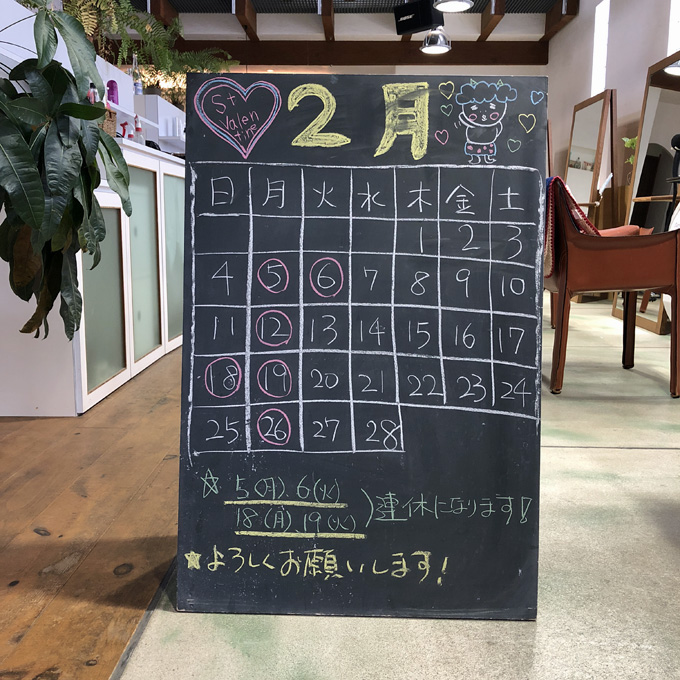 St
Valen
tine
2月
日 月 火 水 木 金 土
1 2 3
4 5 6 7 8 9 10
11 12 13 14 15 16 17
18 19 20 21 22 23 24
25 26 27 28
☆ 5(月). 6(火)
18(月) 19(火) )連休になります!
★よろしくお願いします!
BOSE